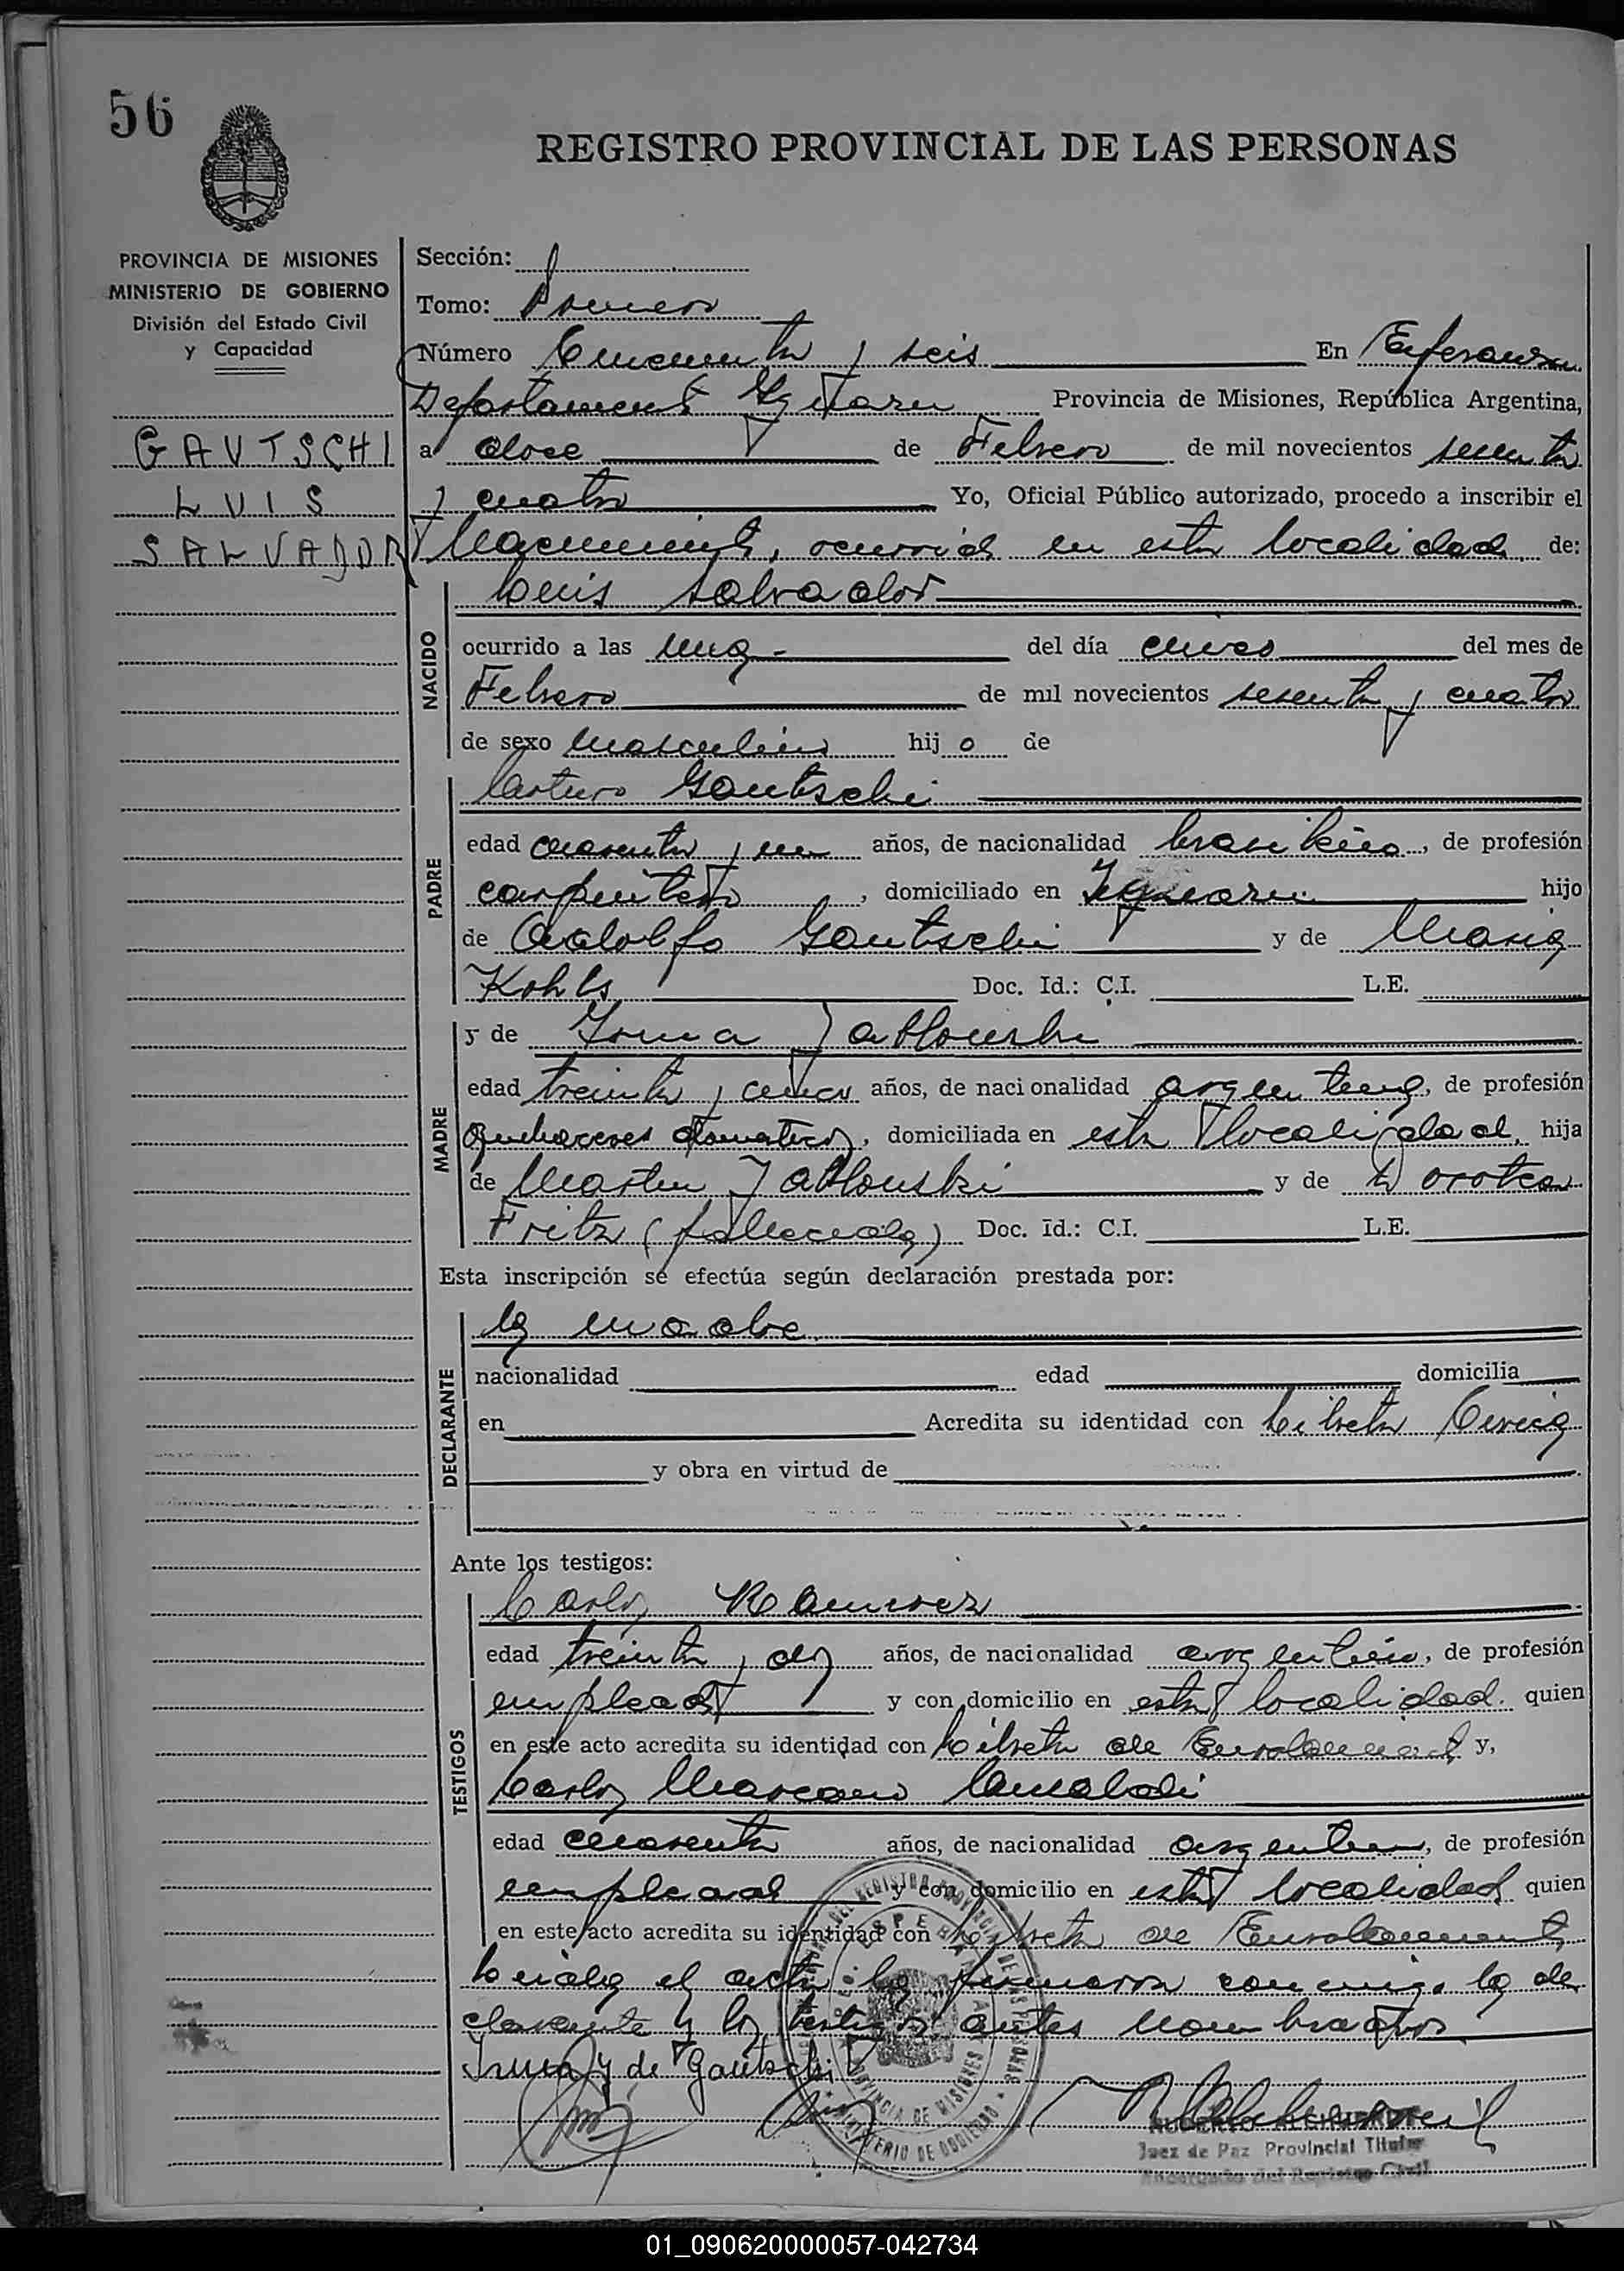 56
REGISTRO PROVINCIAL DE LAS PERSONAS
PROVINCIA DE MISIONES
MINISTERIO DE GOBIERNO
División del Estado Civil
y Capacidad
GAUTSCHI
LUIS
SALVADOR
Sección:
Tomo: Primero
Número Cincuenta y seis En Esperanza
Departamento Yguazu Provincia de Misiones, República Argentina,
a doce de Febrero de mil novecientos sesenta
y cuatro Yo, Oficial Público autorizado, procedo a inscribir el
Nacimiento, ocurrido en esta localidad de:
Luis Salvador
NACIDO
ocurrido a las una del día cinco del mes de
Febrero de mil novecientos sesenta y cuatro
de sexo masculino hijo de
PADRE
Arturo Gautschi
edad cuarenta y un años, de nacionalidad brasilero, de profesión
carpintero, domiciliado en Yguazu hijo
de Adolfo Gautschi y de Maria
Kohls Doc. Id.: C.I. L.E.
MADRE
y de Irma Jablonski
edad treinta y cinco años, de nacionalidad argentina, de profesión
Quehaceres domesticos, domiciliada en esta localidad, hija
de Martin Jablonski y de Dorotea
Fritz (fallecida) Doc. Id.: C.I. L.E.
Esta inscripción se efectúa según declaración prestada por:
DECLARANTE
la madre
nacionalidad edad domicilia
en Acredita su identidad con Libreta Civica
y obra en virtud de
Ante los testigos:
TESTIGOS
Carlos Ramirez
edad treinta y dos años, de nacionalidad argentino, de profesión
empleado y con domicilio en esta localidad. quien
en este acto acredita su identidad con Libreta de Enrolamiento y,
Carlos Marcano
edad cuarenta años, de nacionalidad argentino, de profesión
empleado y con domicilio en esta localidad quien
en este acto acredita su identidad con Libreta de Enrolamiento
Leida el acta la firmaron conmigo la de
clarante y los testigos antes nombrados
Irma J de Gautschi
REGISTRO PROVINCIAL DE LAS PERSONAS
PROVINCIA DE MISIONES
MINISTERIO DE GOBIERNO
Juez de Paz Provincial Titular
Encargado del Registro Civil
01_090620000057-042734